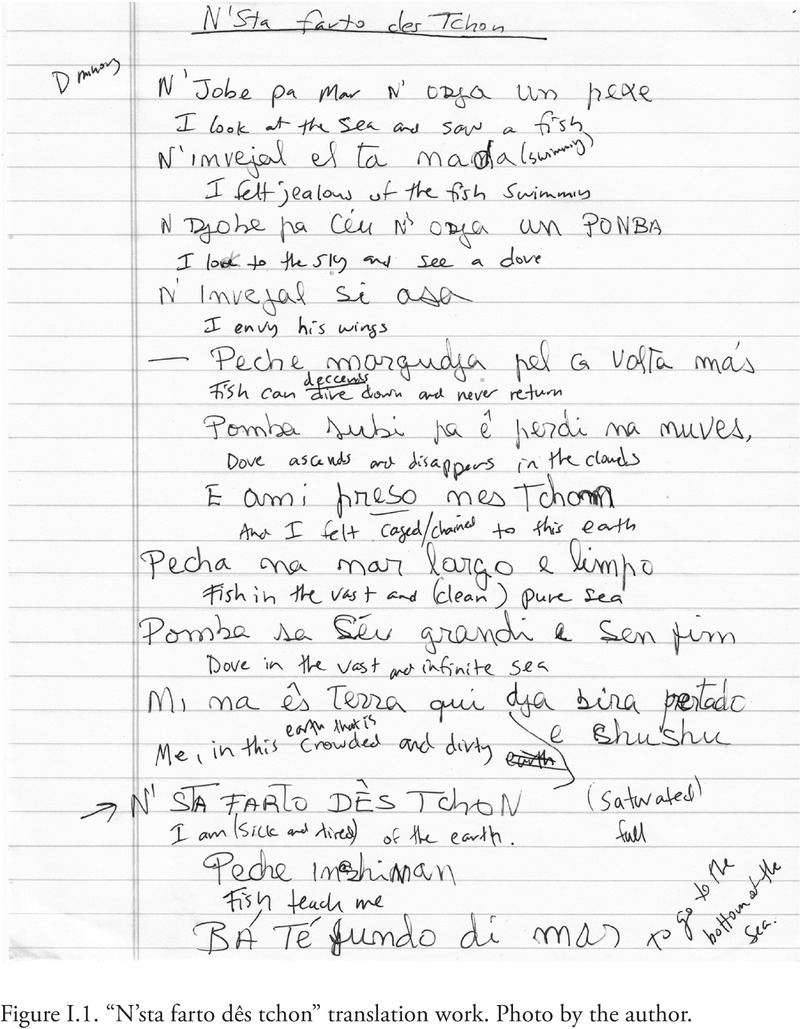 N'Sta farto des Tchon
D minor
N' Jobe pa Mar N' odja un pexe
I look at the sea and saw a fish
N'invejal el ta nada (swimming)
I felt jealous of the fish swimming
N Djobe pa Céu N' odja un PONBA
I look to the sky and see a dove
N' Invejal si asa
I envy his wings
— Peche margudja pel ca volta más
deccends
Fish can dive down and never return
Pomba subi pa ê perdi na nuves,
Dove ascends and disappears in the clouds
E ami preso nes Tchon
And I felt caged/chained to this earth
Pecha na mar largo e limpo
Fish in the vast and (clean) pure sea
Pomba sa Séu grandi e sen fim
Dove in the vast and infinite sea
Mi na ês Terra qui dja bira pertado
e shushu
earth that is
Me, in this crowded and dirty earth
→ N' STA FARTO DÊS TCHON (saturated)
I am (sick and tired) of the earth. full
Peche inshinan
Fish teach me
BÁ TÉ fundo di mar to go to the
bottom of the
sea.
Figure I.1. “N’sta farto dês tchon” translation work. Photo by the author.